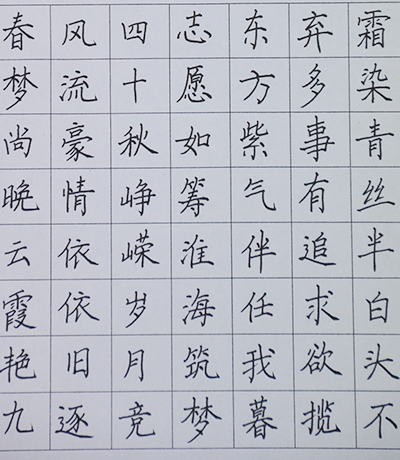 霜染青丝半白头不
弃多事有追求欲揽
东方紫气伴任我暮
志愿如筹淮海筑梦
四十秋峥嵘岁月竞
风流豪情依依旧逐
春梦尚晚云霞艳九